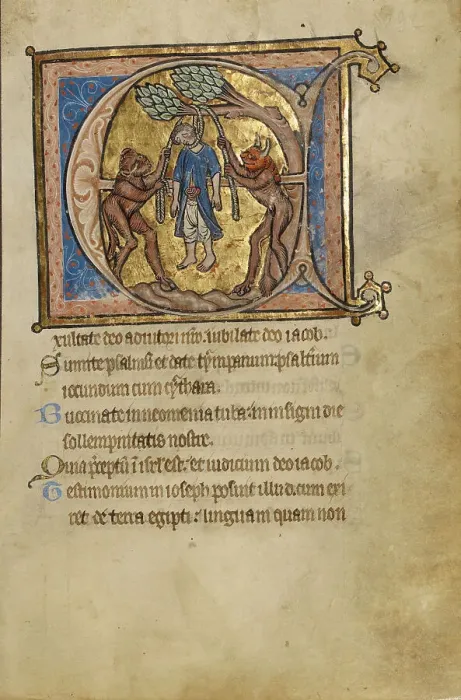 E
xultate deo adiutori nro. iubilate deo iacob.
Sumite psalmū et date tympanum: psalterium
iocundum cum cythara.
Buccinate in neomenia tuba: in insigni die
sollempnitatis nostre.
Quia p̄ceptū ī isrl est. et iudicium deo iacob.
Testimonium in ioseph posuit illud. cum exi
ret de terra egipti: linguam quam non